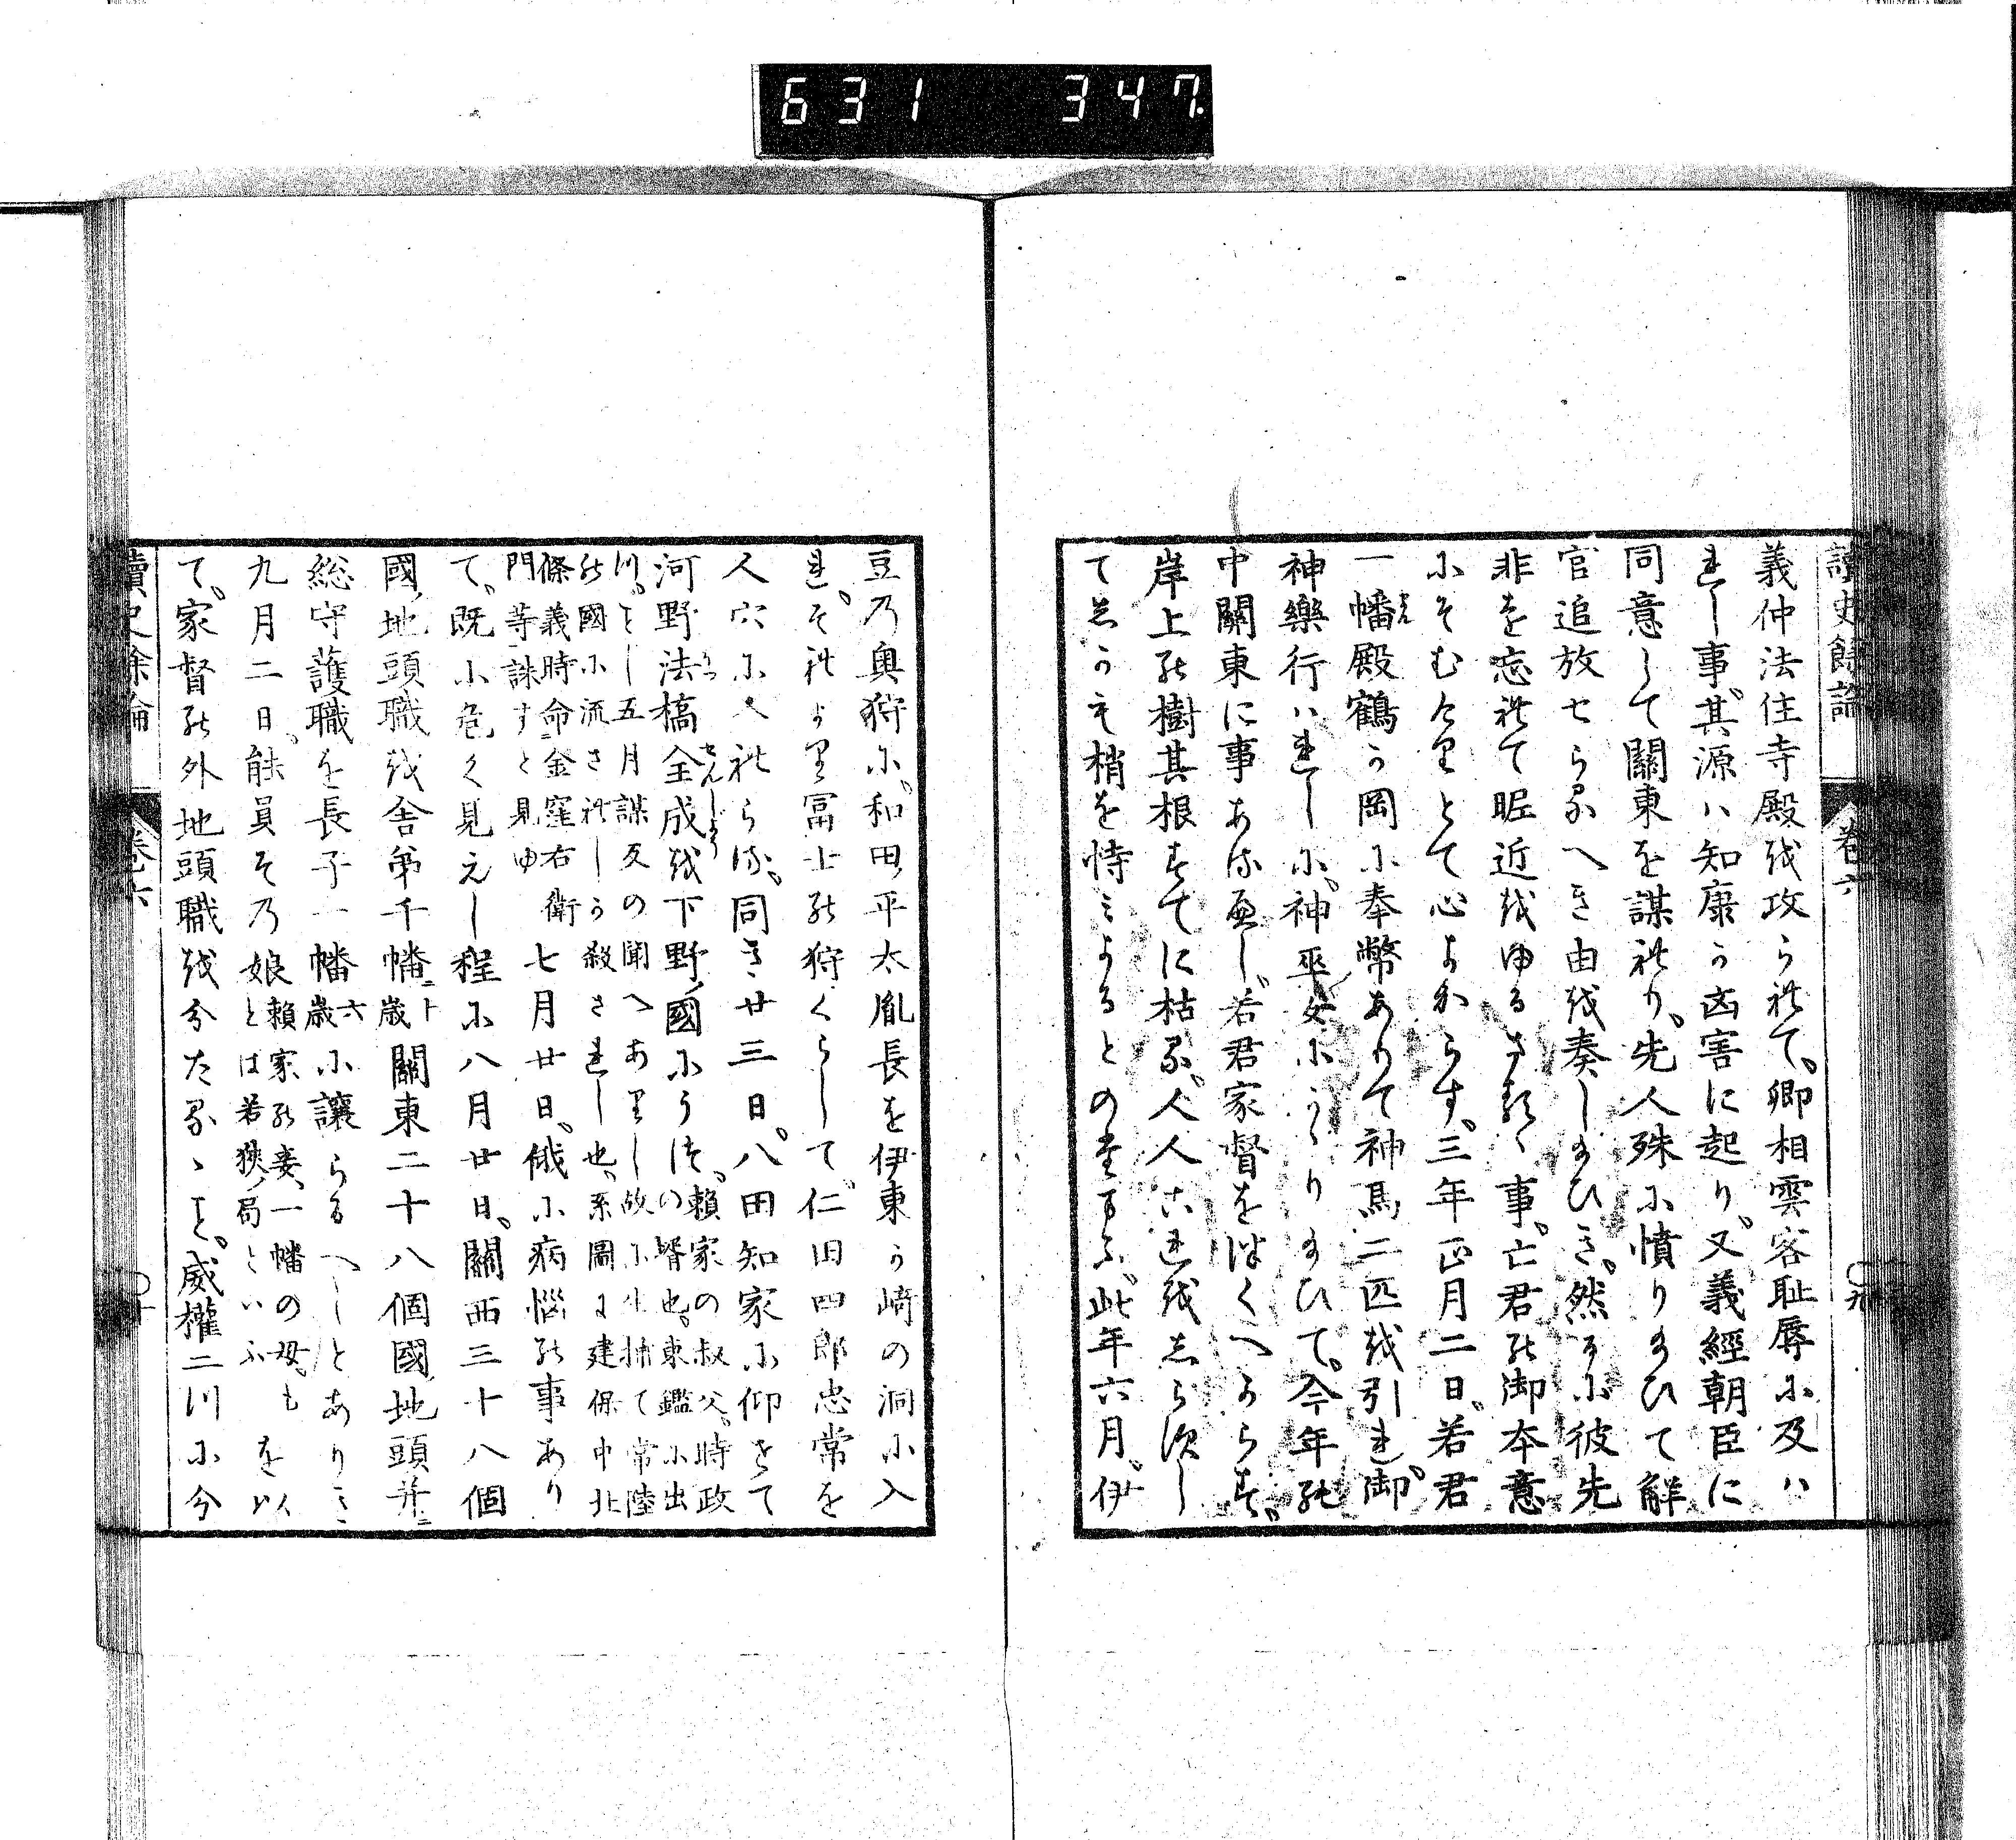 631 347
讀史餘論 卷六 〇十九
義仲法住寺殿を攻られて、卿相雲客耻辱に及ハ
れし事、其源ハ知康か凶害に起り、又義經朝臣に
同意して關東を謀れり、先人殊に憤り給ひて解
官追放せらるへき由を奏し給ひき、然るに彼先
非を忘れて昵近をゆるさるゝ事、亡君の御本意
にそむくなりとて心よからす、三年正月二日、若君
一幡殿鶴か岡に奉幣ありて神馬二匹を引れ、御
神樂行ハれしに、神巫女にかゝり給ひて、今年の
中關東に事あるへし、若君家督をつくへからす、
岸上の樹其根すてに枯る、人人これをしらすし
てしかも梢を恃ミよるとのたまふ、此年六月、伊
豆乃奥狩に、和田平太胤長を伊東か崎の洞に入
れ、それより冨士の狩くらして、仁田四郎忠常を
人穴に入れらる、同き廿三日、八田知家に仰をて
河野法橋全成を下野國にうつ、賴家の叔父、時政の婿也、東鑑に出
つ、ことし五月謀反の聞へありし故に生捕て常陸
の國に流されしか殺されし也、系圖に建保中北
條義時命金窪右衛
門等誅すと見ゆ 七月廿日、俄に病惱の事あり
て、既に危く見えし程に八月廿日、關西三十八個
國ノ地頭職を舎弟千幡ニ十歳關東二十八個國ノ地頭并ニ
総守護職を長子一幡六歳に讓らるへしとありき
九月二日、能員その娘賴家の妾、一幡の母、もとは若狹ノ局といふを以
て、家督の外地頭職を分たるゝこと、威權二つに分
讀史餘論 卷之六